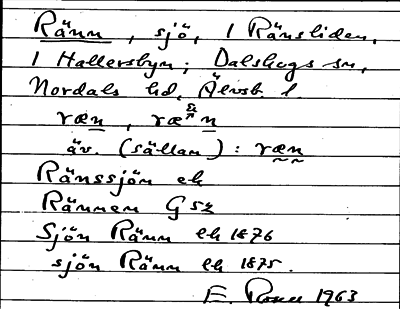 Ränn, sjö, i Ränsliden,
i Hallersbyn; Dalskogs sn,
Nordals hd, Älvsb. l.
ræn, ræn
äv. (sällan): ræn
Ränssjön ek
Rännen GSK
Sjön Ränn ek 1876
sjön Ränn ek 1875.
E. 1963